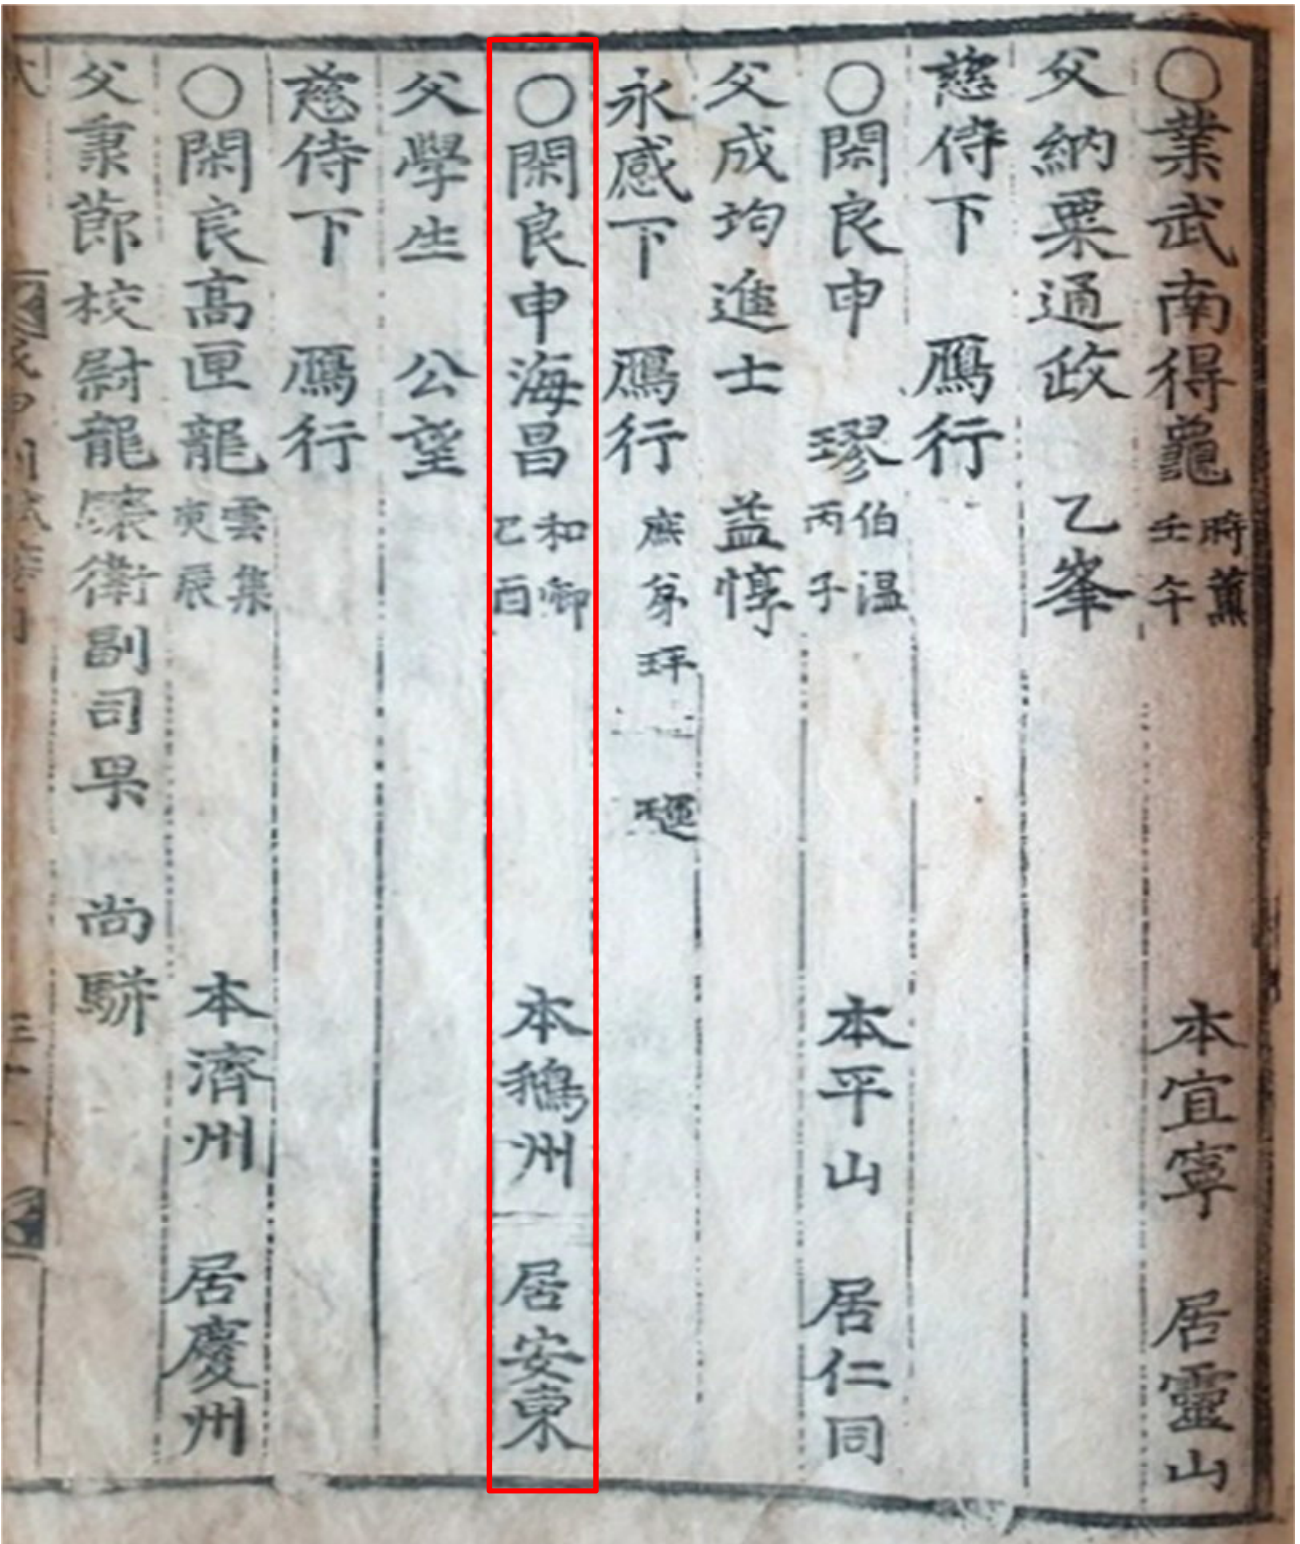 ○業武南得龜 時薰 壬午 本宜寧 居靈山
父納粟通政 乙峯
慈侍下 鴈行
○閑良申 璆 伯温 丙子 本平山 居仁同
父成均進士 益惇
永感下 鴈行 庶弟 玶
○閑良申海昌 和卿 己酉 本鵝州 居安東
父學生 公望
慈侍下 鴈行
○閑良高匣龍 雲集 庚辰 本濟州 居慶州
父秉節校尉龍驤衛副司果 尚駢